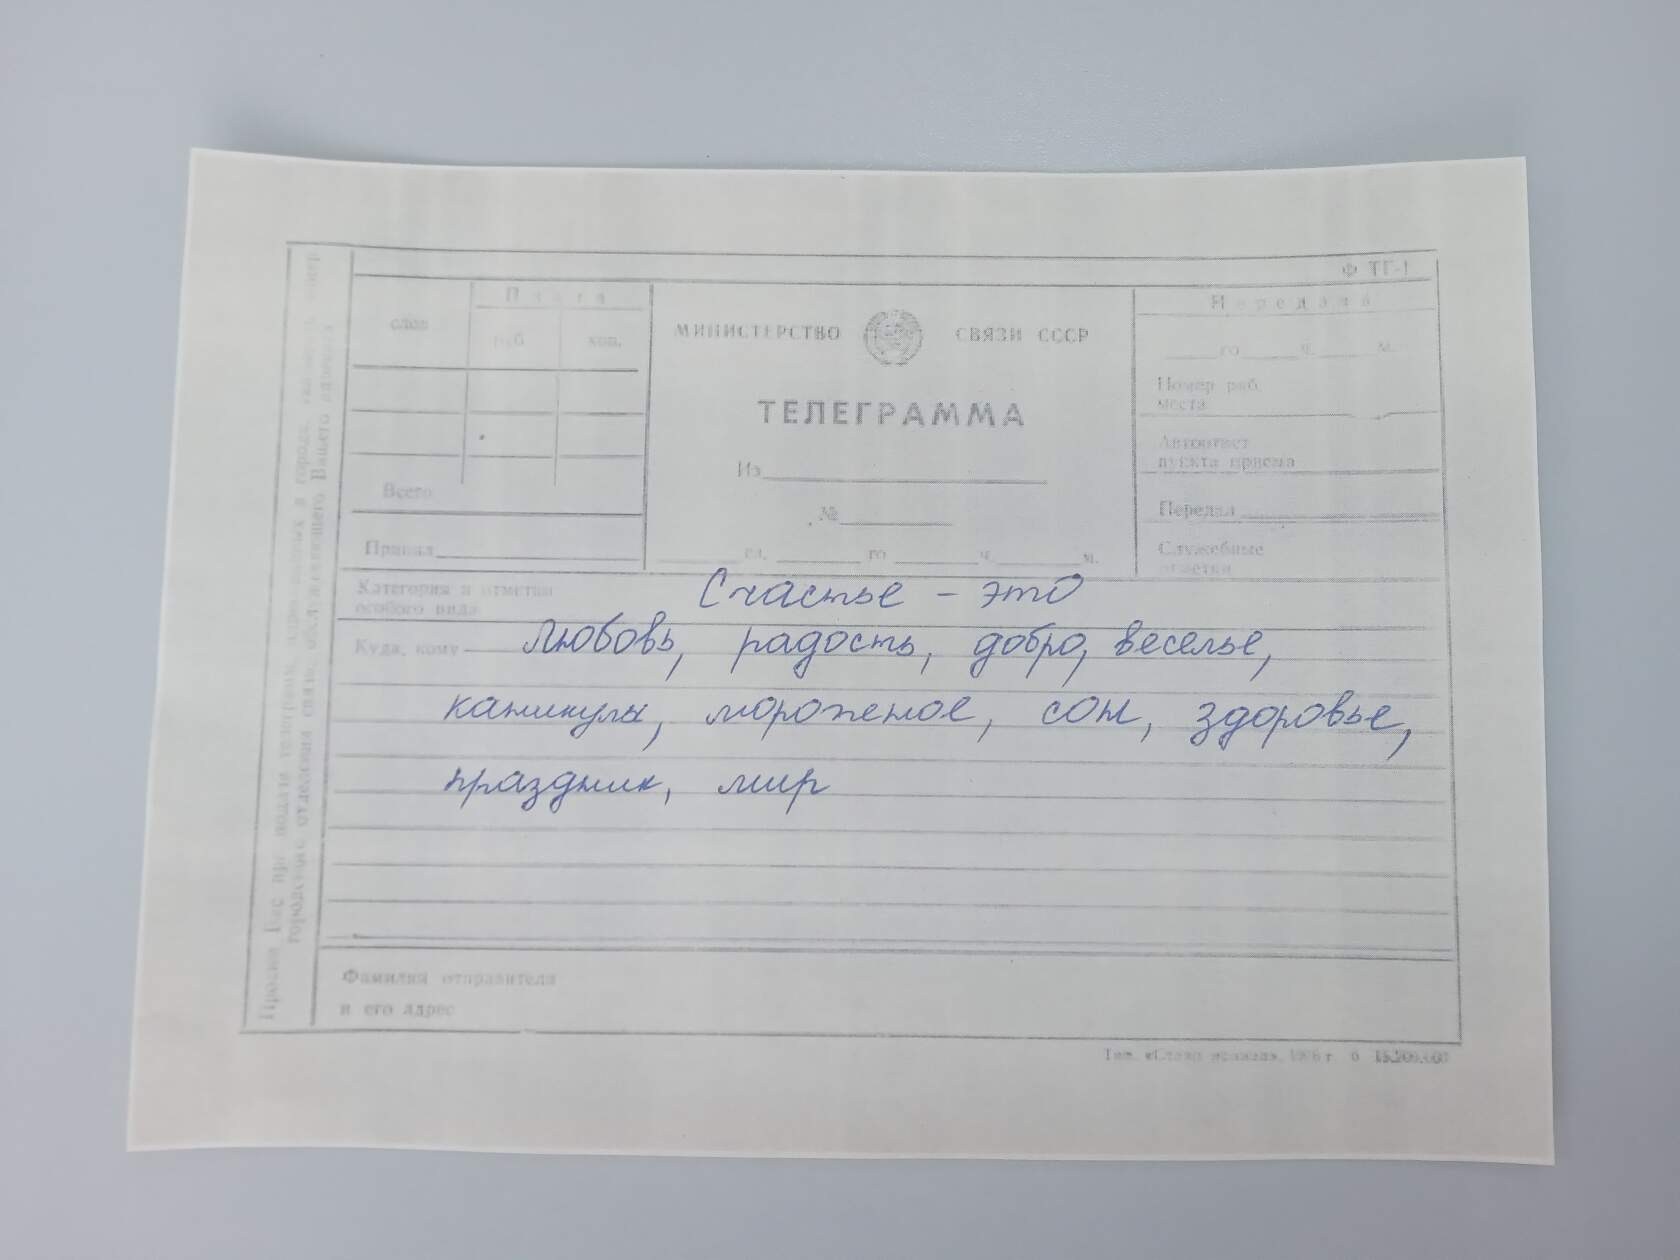 Ф ТГ-1
Плата
слов
руб.
коп.
Всего
Принял
МИНИСТЕРСТВО СВЯЗИ СССР
ТЕЛЕГРАММА
Из
№
сл. го ч. м.
Передача
го ч. м.
Номер раб.
места
Автоответ
пункта приема
Передал
Служебные
отметки
Категория и отметки
особого вида
Счастье - это
Куда, кому
любовь, радость, добро, веселье,
каникулы, мороженое, сон, здоровье,
праздник, мир
Фамилия отправителя
и его адрес
Просим Вас при подаче телеграмм,
городского отделения связи, обслуживающего Вашего адресата
15.200.000